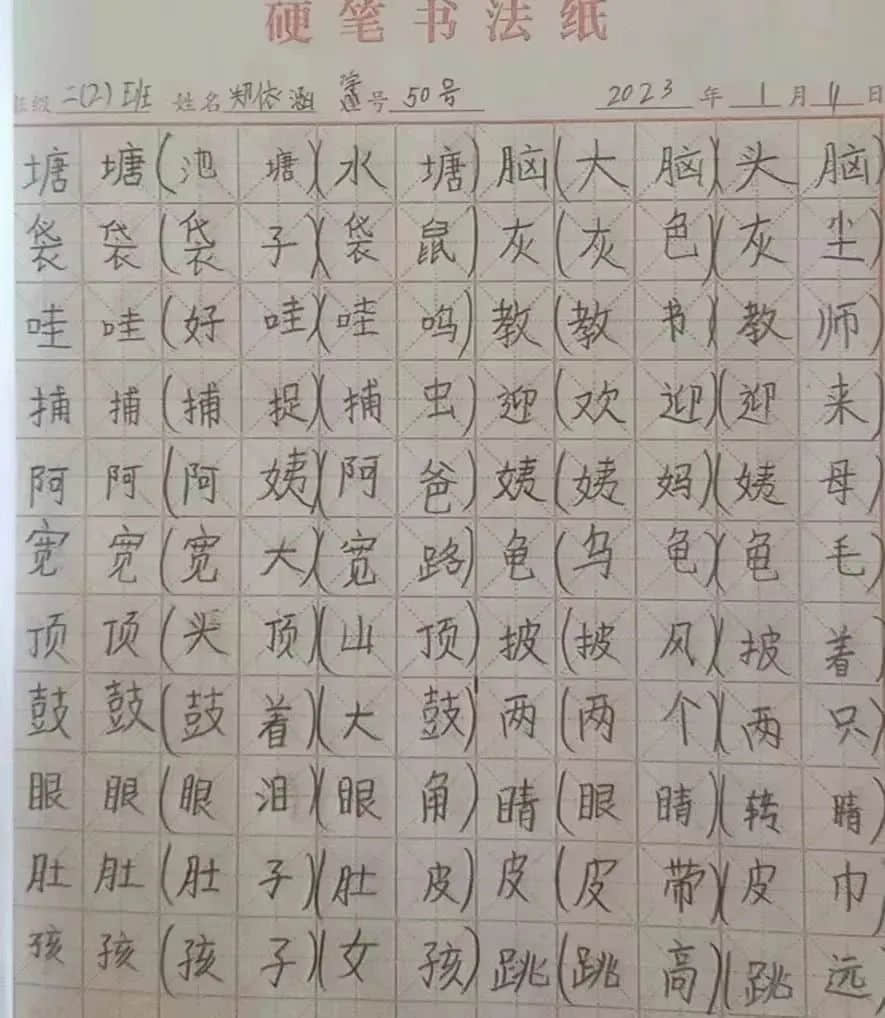 硬笔书法纸
班级 二(2)班 姓名 郑依涵 学号 50号 2023年1月11日
塘 塘(池 塘)(水 塘)脑(大 脑)(头 脑)
袋 袋(袋 子)(袋 鼠)灰(灰 色)(灰 尘)
哇 哇(好 哇)(哇 呜)教(教 书)(教 师)
捕 捕(捕 捉)(捕 虫)迎(欢 迎)(迎 来)
阿 阿(阿 姨)(阿 爸)姨(姨 妈)(姨 母)
宽 宽(宽 大)(宽 路)龟(乌 龟)(龟 毛)
顶 顶(头 顶)(山 顶)披(披 风)(披 着)
鼓 鼓(鼓 着)(大 鼓)两(两 个)(两 只)
眼 眼(眼 泪)(眼 角)睛(眼 睛)(转 睛)
肚 肚(肚 子)(肚 皮)皮(皮 带)(皮 巾)
孩 孩(孩 子)(女 孩)跳(跳 高)(跳 远)